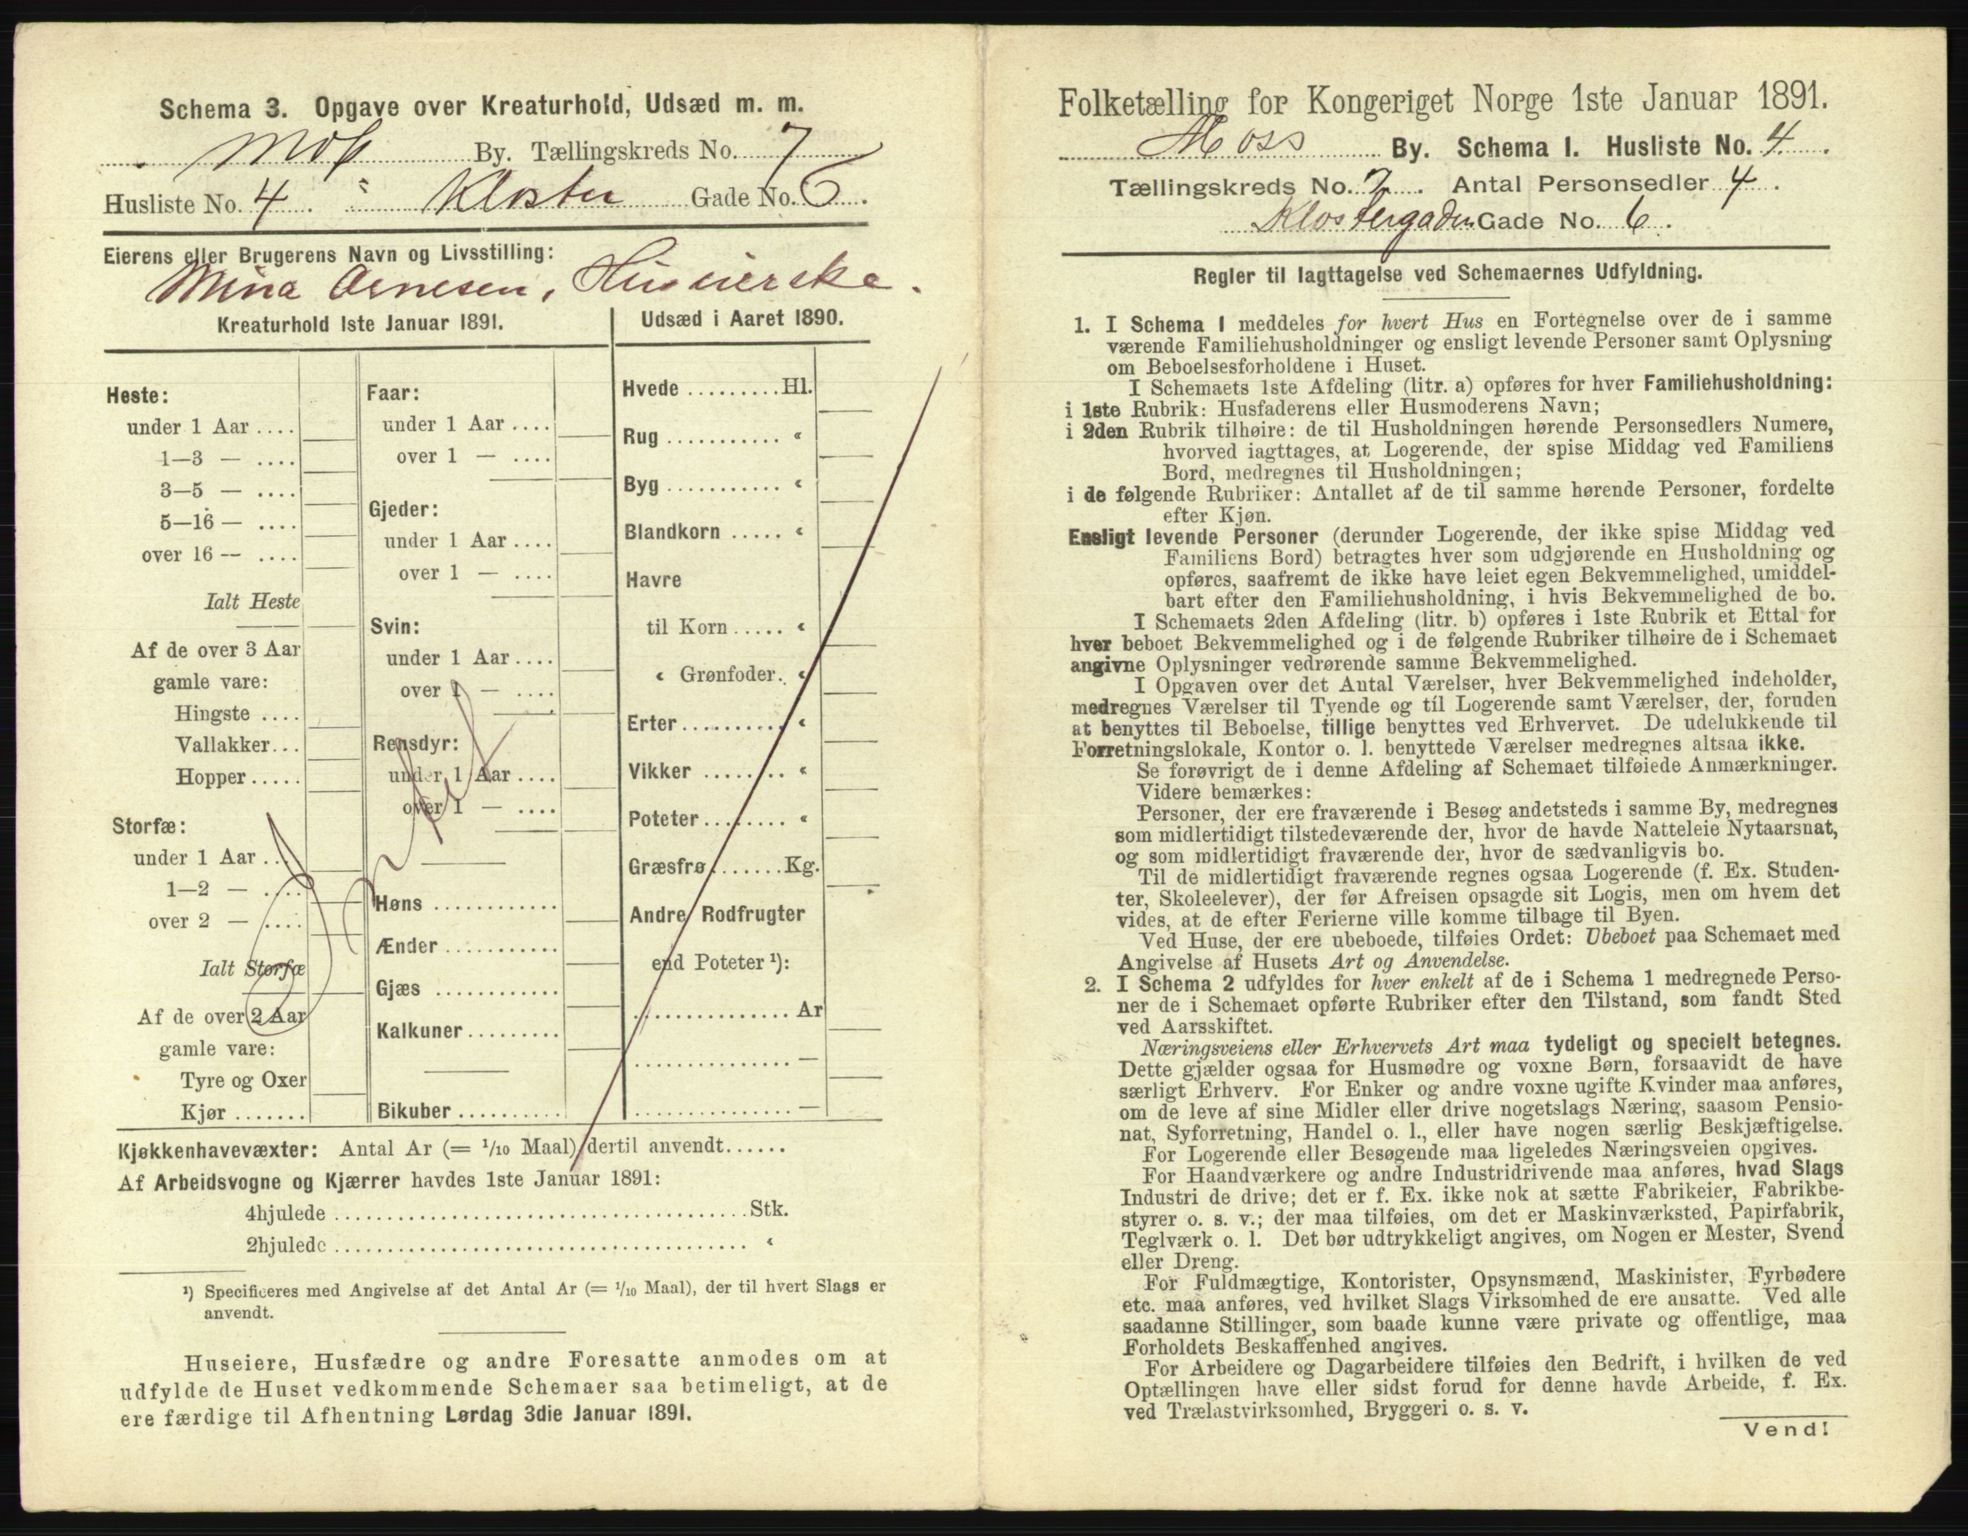 Schema 3. Opgave over Kreaturhold, Udsæd m. m.
Moss By. Tællingskreds No. 7
Husliste No. 4. Kloster Gade No. 6.
Eierens eller Brugerens Navn og Livsstilling:
Mina Arnesen, Huseierske.
Kreaturhold 1ste Januar 1891.
Heste:
under 1 Aar ....
1—3 — ....
3—5 — ....
5—16 — ....
over 16 — ....
Ialt Heste
Af de over 3 Aar
gamle vare:
Hingste ....
Vallakker...
Hopper.....
Storfæ:
under 1 Aar ...
1—2 — ....
over 2 — ....
Ialt Storfæ
Af de over 2 Aar
gamle vare:
Tyre og Oxer
Kjør .......
Faar:
under 1 Aar ....
over 1 — ....
Gjeder:
under 1 Aar ....
over 1 — ....
Svin:
under 1 Aar ....
over 1 — ....
Rensdyr:
under 1 Aar ....
over 1 — ....
Høns ............
Ænder ...........
Gjæs ............
Kalkuner .........
Bikuber ..........
Udsæd i Aaret 1890.
Hvede .........Hl.
Rug ........... «
Byg ........... «
Blandkorn ..... «
Havre
til Korn ..... «
« Grønfoder. «
Erter ......... «
Vikker ........ «
Poteter ........ «
Græsfrø.......Kg.
Andre Rodfrugter
end Poteter ¹):
............... Ar
............... —
............... —
Kjøkkenhavevæxter: Antal Ar (= 1/10 Maal) dertil anvendt......
Af Arbeidsvogne og Kjærrer havdes 1ste Januar 1891:
4hjulede ........................................Stk.
2hjulede ........................................ «
¹) Specificeres med Angivelse af det Antal Ar (= 1/10 Maal), der til hvert Slags er
anvendt.
Huseiere, Husfædre og andre Foresatte anmodes om at
udfylde de Huset vedkommende Schemaer saa betimeligt, at de
ere færdige til Afhentning Lørdag 3die Januar 1891.
Folketælling for Kongeriget Norge 1ste Januar 1891.
Moss By. Schema I. Husliste No. 4.
Tællingskreds No. 7. Antal Personsedler 4.
Klostergaden Gade No. 6.
Regler til Iagttagelse ved Schemaernes Udfyldning.
1. I Schema 1 meddeles for hvert Hus en Fortegnelse over de i samme
værende Familiehusholdninger og ensligt levende Personer samt Oplysning
om Beboelsesforholdene i Huset.
I Schemaets 1ste Afdeling (litr. a) opføres for hver Familiehusholdning:
i 1ste Rubrik: Husfaderens eller Husmoderens Navn;
i 2den Rubrik tilhøire: de til Husholdningen hørende Personsedlers Numere,
hvorved iagttages, at Logerende, der spise Middag ved Familiens
Bord, medregnes til Husholdningen;
i de følgende Rubriker: Antallet af de til samme hørende Personer, fordelte
efter Kjøn.
Ensligt levende Personer (derunder Logerende, der ikke spise Middag ved
Familiens Bord) betragtes hver som udgjørende en Husholdning og
opføres, saafremt de ikke have leiet egen Bekvemmelighed, umiddel-
bart efter den Familiehusholdning, i hvis Bekvemmelighed de bo.
I Schemaets 2den Afdeling (litr. b) opføres i 1ste Rubrik et Ettal for
hver beboet Bekvemmelighed og i de følgende Rubriker tilhøire de i Schemaet
angivne Oplysninger vedrørende samme Bekvemmelighed.
I Opgaven over det Antal Værelser, hver Bekvemmelighed indeholder,
medregnes Værelser til Tyende og til Logerende samt Værelser, der, foruden
at benyttes til Beboelse, tillige benyttes ved Erhvervet. De udelukkende til
Forretningslokale, Kontor o. l. benyttede Værelser medregnes altsaa ikke.
Se forøvrigt de i denne Afdeling af Schemaet tilføiede Anmærkninger.
Videre bemærkes:
Personer, der ere fraværende i Besøg andetsteds i samme By, medregnes
som midlertidigt tilstedeværende der, hvor de havde Natteleie Nytaarsnat,
og som midlertidigt fraværende der, hvor de sædvanligvis bo.
Til de midlertidigt fraværende regnes ogsaa Logerende (f. Ex. Studen-
ter, Skoleelever), der før Afreisen opsagde sit Logis, men om hvem det
vides, at de efter Ferierne ville komme tilbage til Byen.
Ved Huse, der ere ubeboede, tilføies Ordet: Ubeboet paa Schemaet med
Angivelse af Husets Art og Anvendelse.
2. I Schema 2 udfyldes for hver enkelt af de i Schema 1 medregnede Perso-
ner de i Schemaet opførte Rubriker efter den Tilstand, som fandt Sted
ved Aarsskiftet.
Næringsveiens eller Erhvervets Art maa tydeligt og specielt betegnes.
Dette gjælder ogsaa for Husmødre og voxne Børn, forsaavidt de have
særligt Erhverv. For Enker og andre voxne ugifte Kvinder maa anføres,
om de leve af sine Midler eller drive nogetslags Næring, saasom Pensio-
nat, Syforretning, Handel o. l., eller have nogen særlig Beskjæftigelse.
For Logerende eller Besøgende maa ligeledes Næringsveien opgives.
For Haandværkere og andre Industridrivende maa anføres, hvad Slags
Industri de drive; det er f. Ex. ikke nok at sætte Fabrikeier, Fabrikbe-
styrer o. s. v.; der maa tilføies, om det er Maskinværksted, Papirfabrik,
Teglværk o. l. Det bør udtrykkeligt angives, om Nogen er Mester, Svend
eller Dreng.
For Fuldmægtige, Kontorister, Opsynsmænd, Maskinister, Fyrbødere
etc. maa anføres, ved hvilket Slags Virksomhed de ere ansatte. Ved alle
saadanne Stillinger, som baade kunne være private og offentlige, maa
Forholdets Beskaffenhed angives.
For Arbeidere og Dagarbeidere tilføies den Bedrift, i hvilken de ved
Optællingen have eller sidst forud for denne havde Arbeide, f. Ex.
ved Trælastvirksomhed, Bryggeri o. s. v.
Vend!